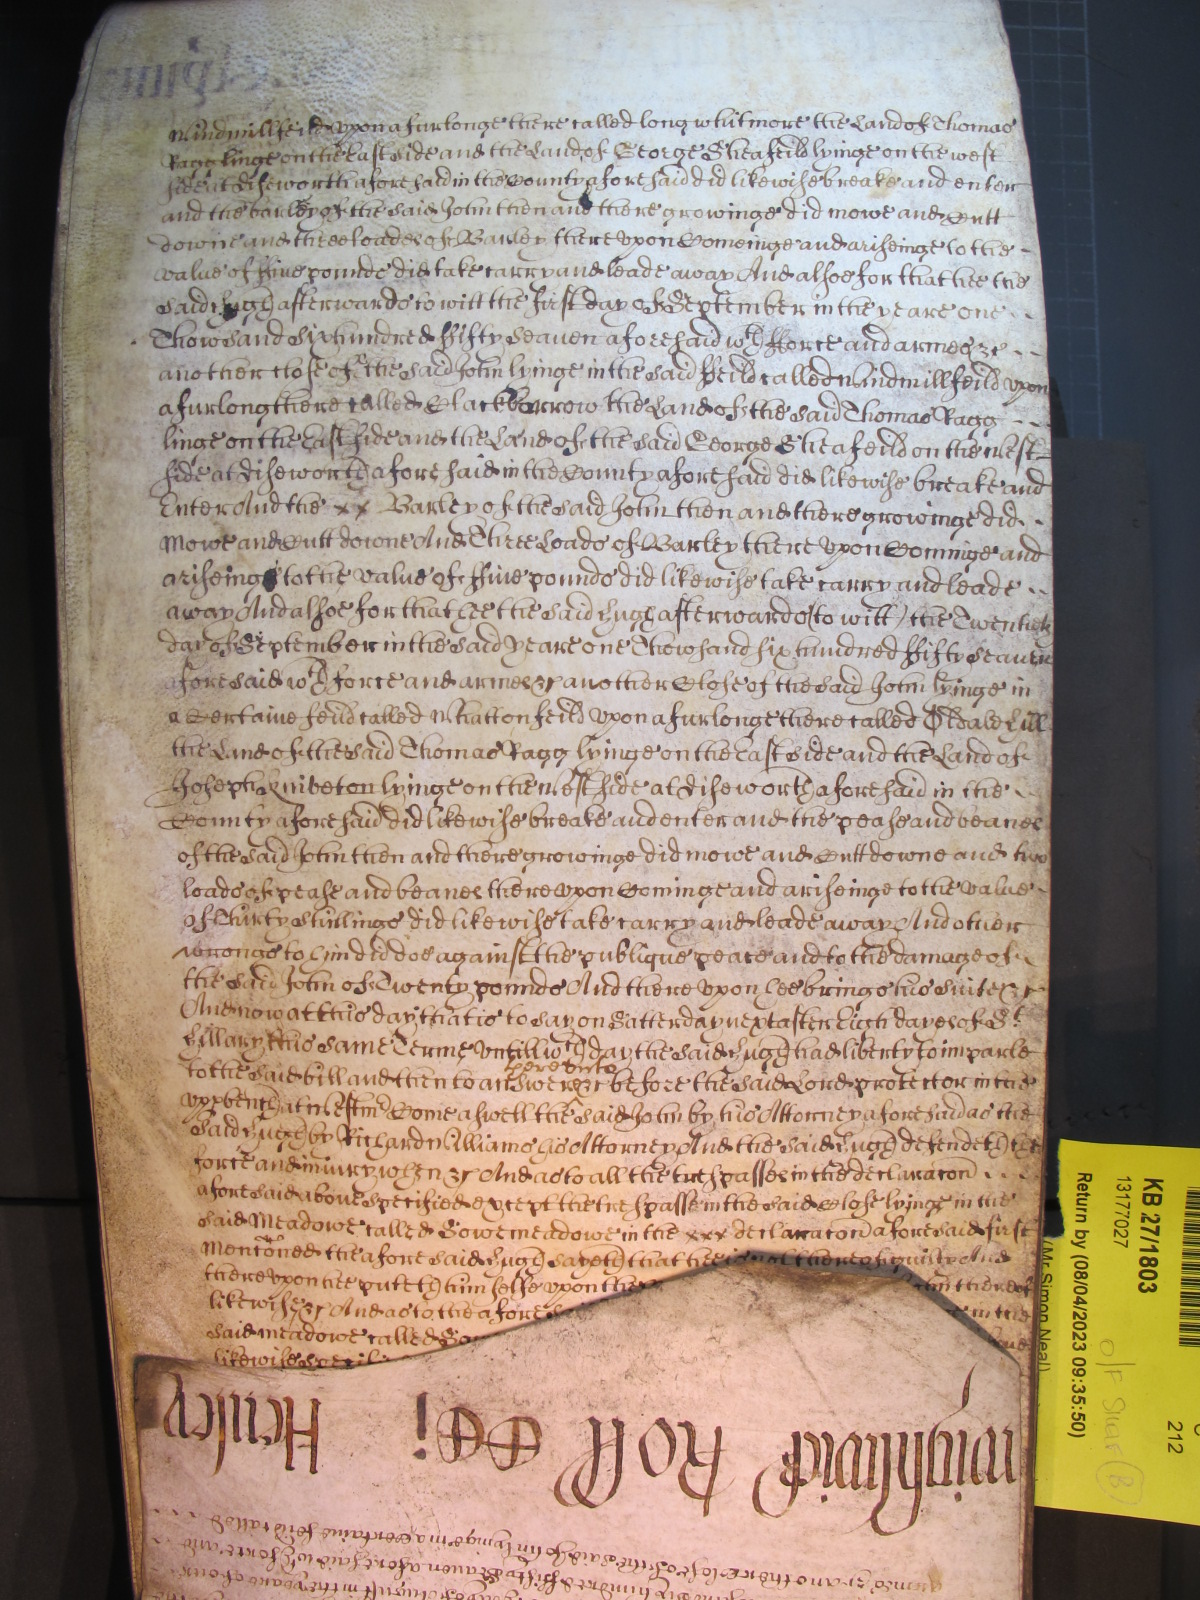 Windmillfeild vpon a furlonge there called long whitmore the Land of Thomas
Ragg linge on the East side and the Land of George Sheafeild lyinge on the west
side at Diseworth aforesaid in the County aforesaid did likewise breake and enter
and the barley of the said John then and there growinge did mowe and Cutt
downe and three loades of Barley there vpon Comeinge and ariseinge to the
value of ffive pounds did take carry and leade away And alsoe for that hee the
said Hugh afterwards to witt the first day of September in the yeare one
Thowsand six hundred ffifty Seaven aforesaid wth fforce and armes &c
another close of the said John lyinge in the said ffeild called Windmillfeild vpon
a furlong there called Blackborrow the Land of the said Thomas Ragg
linge on the East side and the Land of the said George Sheafeild on the West
side at Diseworth aforesaid in the County aforesaid did likewise breake and
Enter And the xx Barley of the said John then and there growinge did
mowe and Cutt downe And Three Loads of Barley there vpon Cominge and
ariseinge to the value of ffive pounds did likewise take carry and leade
away And alsoe for that hee the said Hugh afterwards (to witt) the Twentieth
day of September in the said yeare one Thowsand six hundred ffifty Seaven
aforesaid wth force and armes &c another Close of the said John lyinge in
a Certaine feild called Whatton feild vpon a furlonge there called
the Land of the said Thomas Ragg lyinge on the East side and the Land of
Joseph Kniveton lyinge on the West side at Diseworth aforesaid in the
County aforesaid did likewise breake and enter and the pease and beanes
of the said John then and there growinge did mowe and Cutt downe and two
loads of pease and beanes there vpon Cominge and ariseinge to the value
of Thirty shillings did likewise take carry and leade away And other
wrongs to him did doe against the publique peace and to the damage of
the said John of Twenty pounds And there vpon hee brings his suite &c
And now at this day that is to say on Satterday next after Eight dayes of St
Hillary this same Terme vntill wch day the said Hugh had liberty to imparle
to the said bill and then to answere &c before the said Lord protector in the
herevnto
vpp bench at Westmr Come aswell the said John by his Attorney aforesaid as the
said Hugh by Richard Williams his Attorney And the said Hugh defendeth the
force and iniury when &c And as to all the trespasses in the declaracon
aforesaid above specified except the trespasse in the said Close lyinge in the
said Meadowe called Sowemeadowe in the xxx declaracon aforesaid first
Mentoned the aforesaid Hugh sayeth that hee is not thereof guilty And
there vpon hee puteth himselfe vpon the thereof
likewise &c And as to the afore in the
said meadowe called
likewise
Wightwick Roll CCi Henley
KB 27/1803
13177027
Return by (08/04/2023 09:35:50)
(Mr Simon Neal)
212